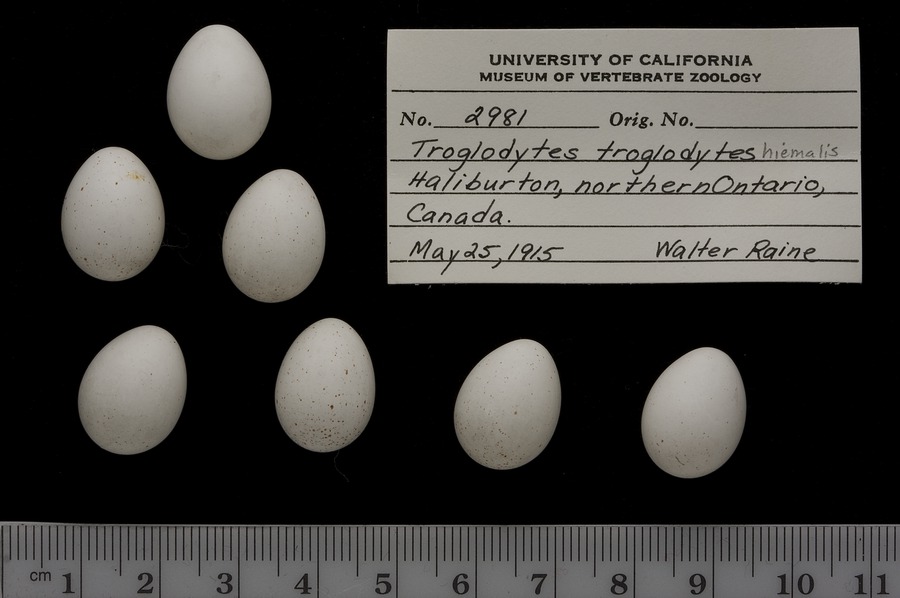 UNIVERSITY OF CALIFORNIA
MUSEUM OF VERTEBRATE ZOOLOGY
No. 2981 Orig. No.
Troglodytes troglodytes hiemalis
Haliburton, northern Ontario,
Canada.
May 25, 1915 Walter Raine
cm 1 2 3 4 5 6 7 8 9 10 11